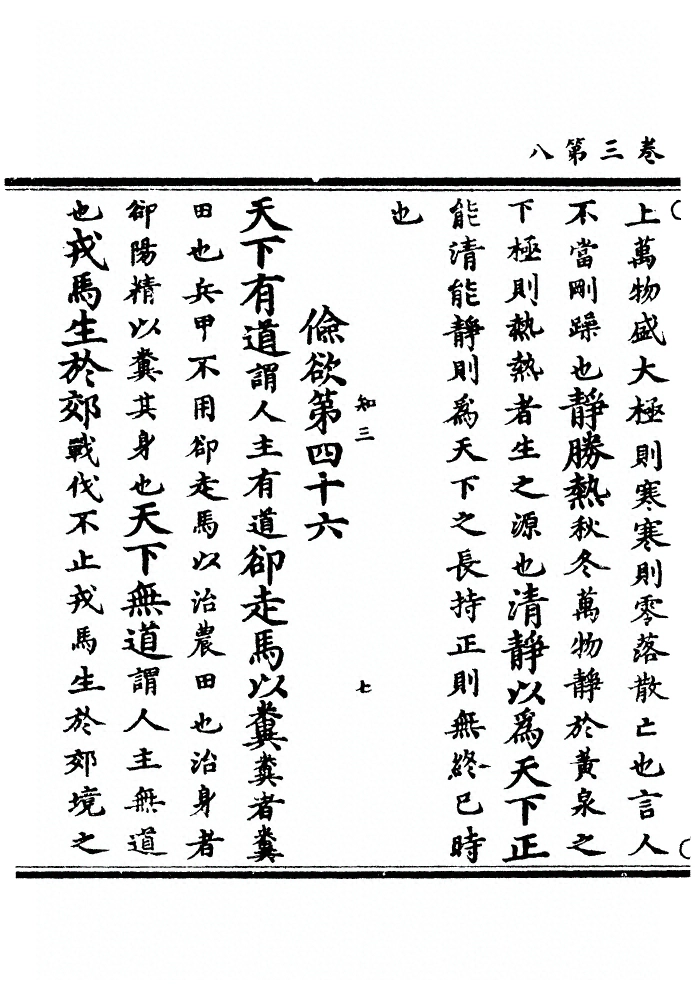 卷三第八
上萬物盛大極則寒寒則零落散亡也言人
不當剛躁也靜勝熱秋冬萬物靜於黃泉之
下極則熱熱者生之源也清靜以為天下正
能清能靜則為天下之長持正則無終已時
也
知三
七
儉欲第四十六
天下有道謂人主有道卻走馬以糞糞者糞
田也兵甲不用卻走馬以治農田也治身者
卻陽精以糞其身也天下無道謂人主無道
也戎馬生於郊戰伐不止戎馬生於郊境之